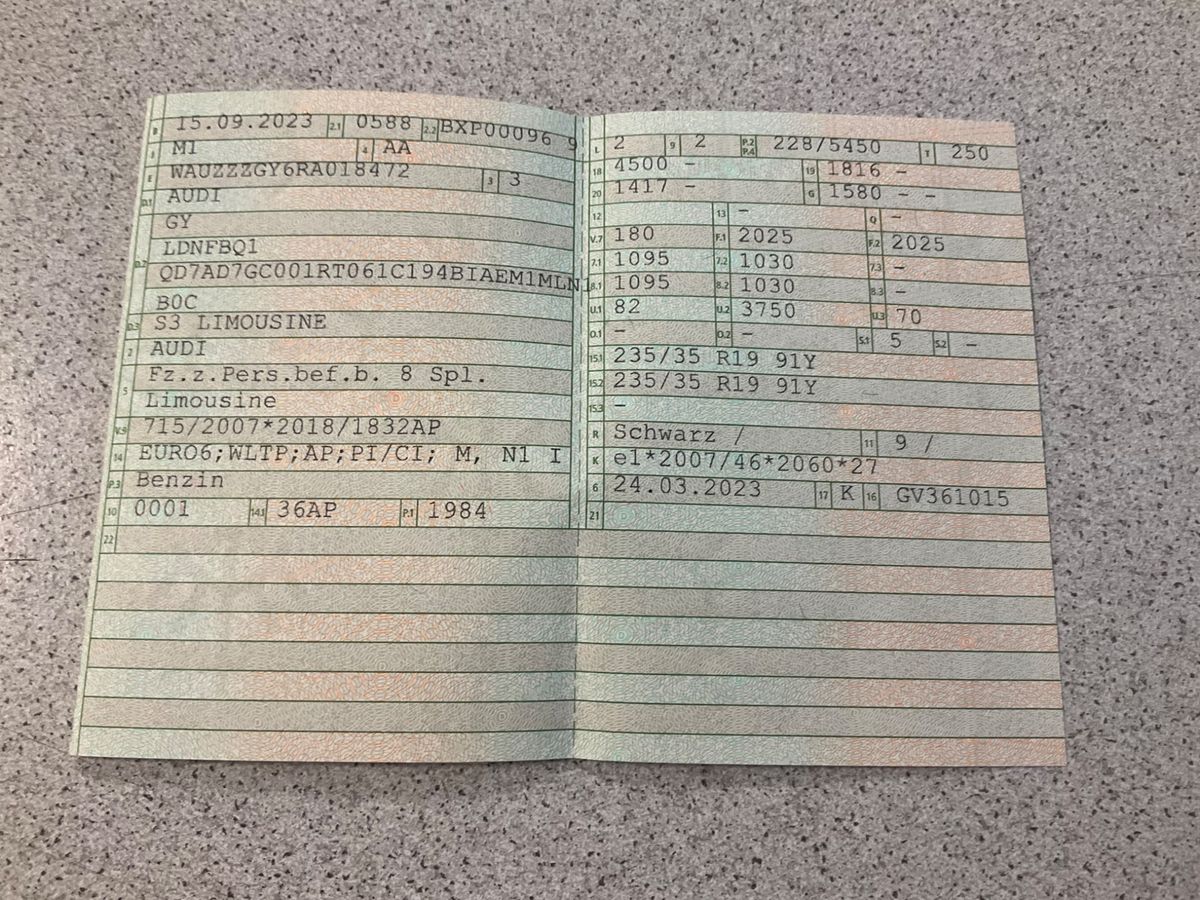 B 15.09.2023 2.1 0588 2.2 BXP00096 9
J M1 4 AA
E WAUZZZGY6RA018472 3 3
D.1 AUDI
D.2 GY
LDNFBQ1
QD7AD7GC001RT061C194BIAEM1MLN
B0C
D.3 S3 LIMOUSINE
2 AUDI
5 Fz.z.Pers.bef.b. 8 Spl.
Limousine
V.9 715/2007*2018/1832AP
14 EURO6;WLTP;AP;PI/CI; M, N1 I
P.3 Benzin
10 0001 14.1 36AP P.1 1984
22
L 2 9 2 P.2 P.4 228/5450 T 250
18 4500 - 19 1816 - -
20 1417 - G 1580 - -
12 13 - Q -
V.7 180 F.1 2025 F.2 2025
7.1 1095 7.2 1030 7.3 -
8.1 1095 8.2 1030 8.3 -
U.1 82 U.2 3750 U.3 70
O.1 - O.2 - S.1 5 S.2 -
15.1 235/35 R19 91Y
15.2 235/35 R19 91Y
15.3 -
R Schwarz / 11 9 /
K e1*2007/46*2060*27
6 24.03.2023 17 K 16 GV361015
21